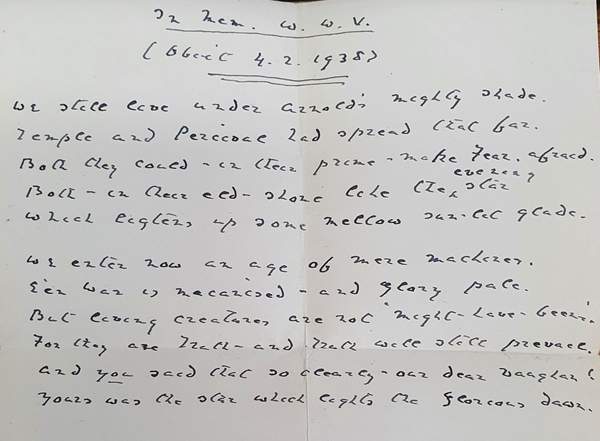 In Mem. W. W. V.
(Obiit 4. 2. 1938)
We still live under Arnold's mighty shade.
Temple and Percival had spread that far.
Both they could - in their prime - make Fear, afraid.
Both - in their eld - shone like the evening star
Which lightens up some mellow sun-lit glade.
We enter now an age of mere machines.
E'en War is mecanised - and glory pale.
But living creatures are not 'might-have-beens'.
For they are Truth - and Truth will still prevail.
And you said that so clearly - our dear Vaughan!
Yours was the star which lights the glorious dawn.